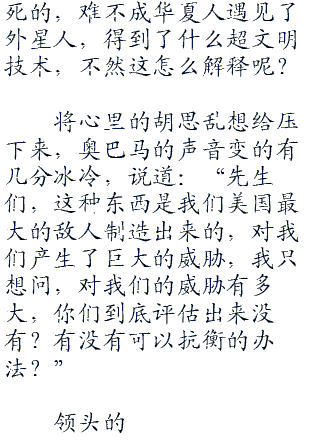 死的，难不成华夏人遇见了
外星人，得到了什么超文明
技术，不然这怎么解释呢？
将心里的胡思乱想给压
下来，奥巴马的声音变的有
几分冰冷，说道：“先生
们，这种东西是我们美国最
大的敌人制造出来的，对我
们产生了巨大的威胁，我只
想问，对我们的威胁有多
大，你们到底评估出来没
有？有没有可以抗衡的办
法？”
领头的